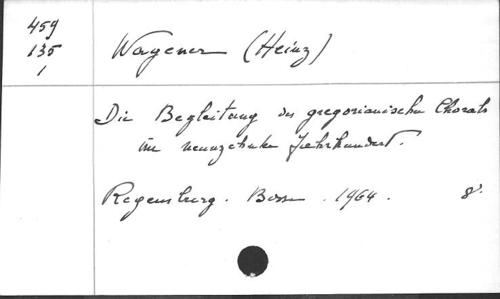 459
135
1
Wagener (Heinz)
Die Begleitung des gregorianischen Chorals
im neunzehnten Jahrhundert.
Regensburg. Bosse. 1964. 8°.